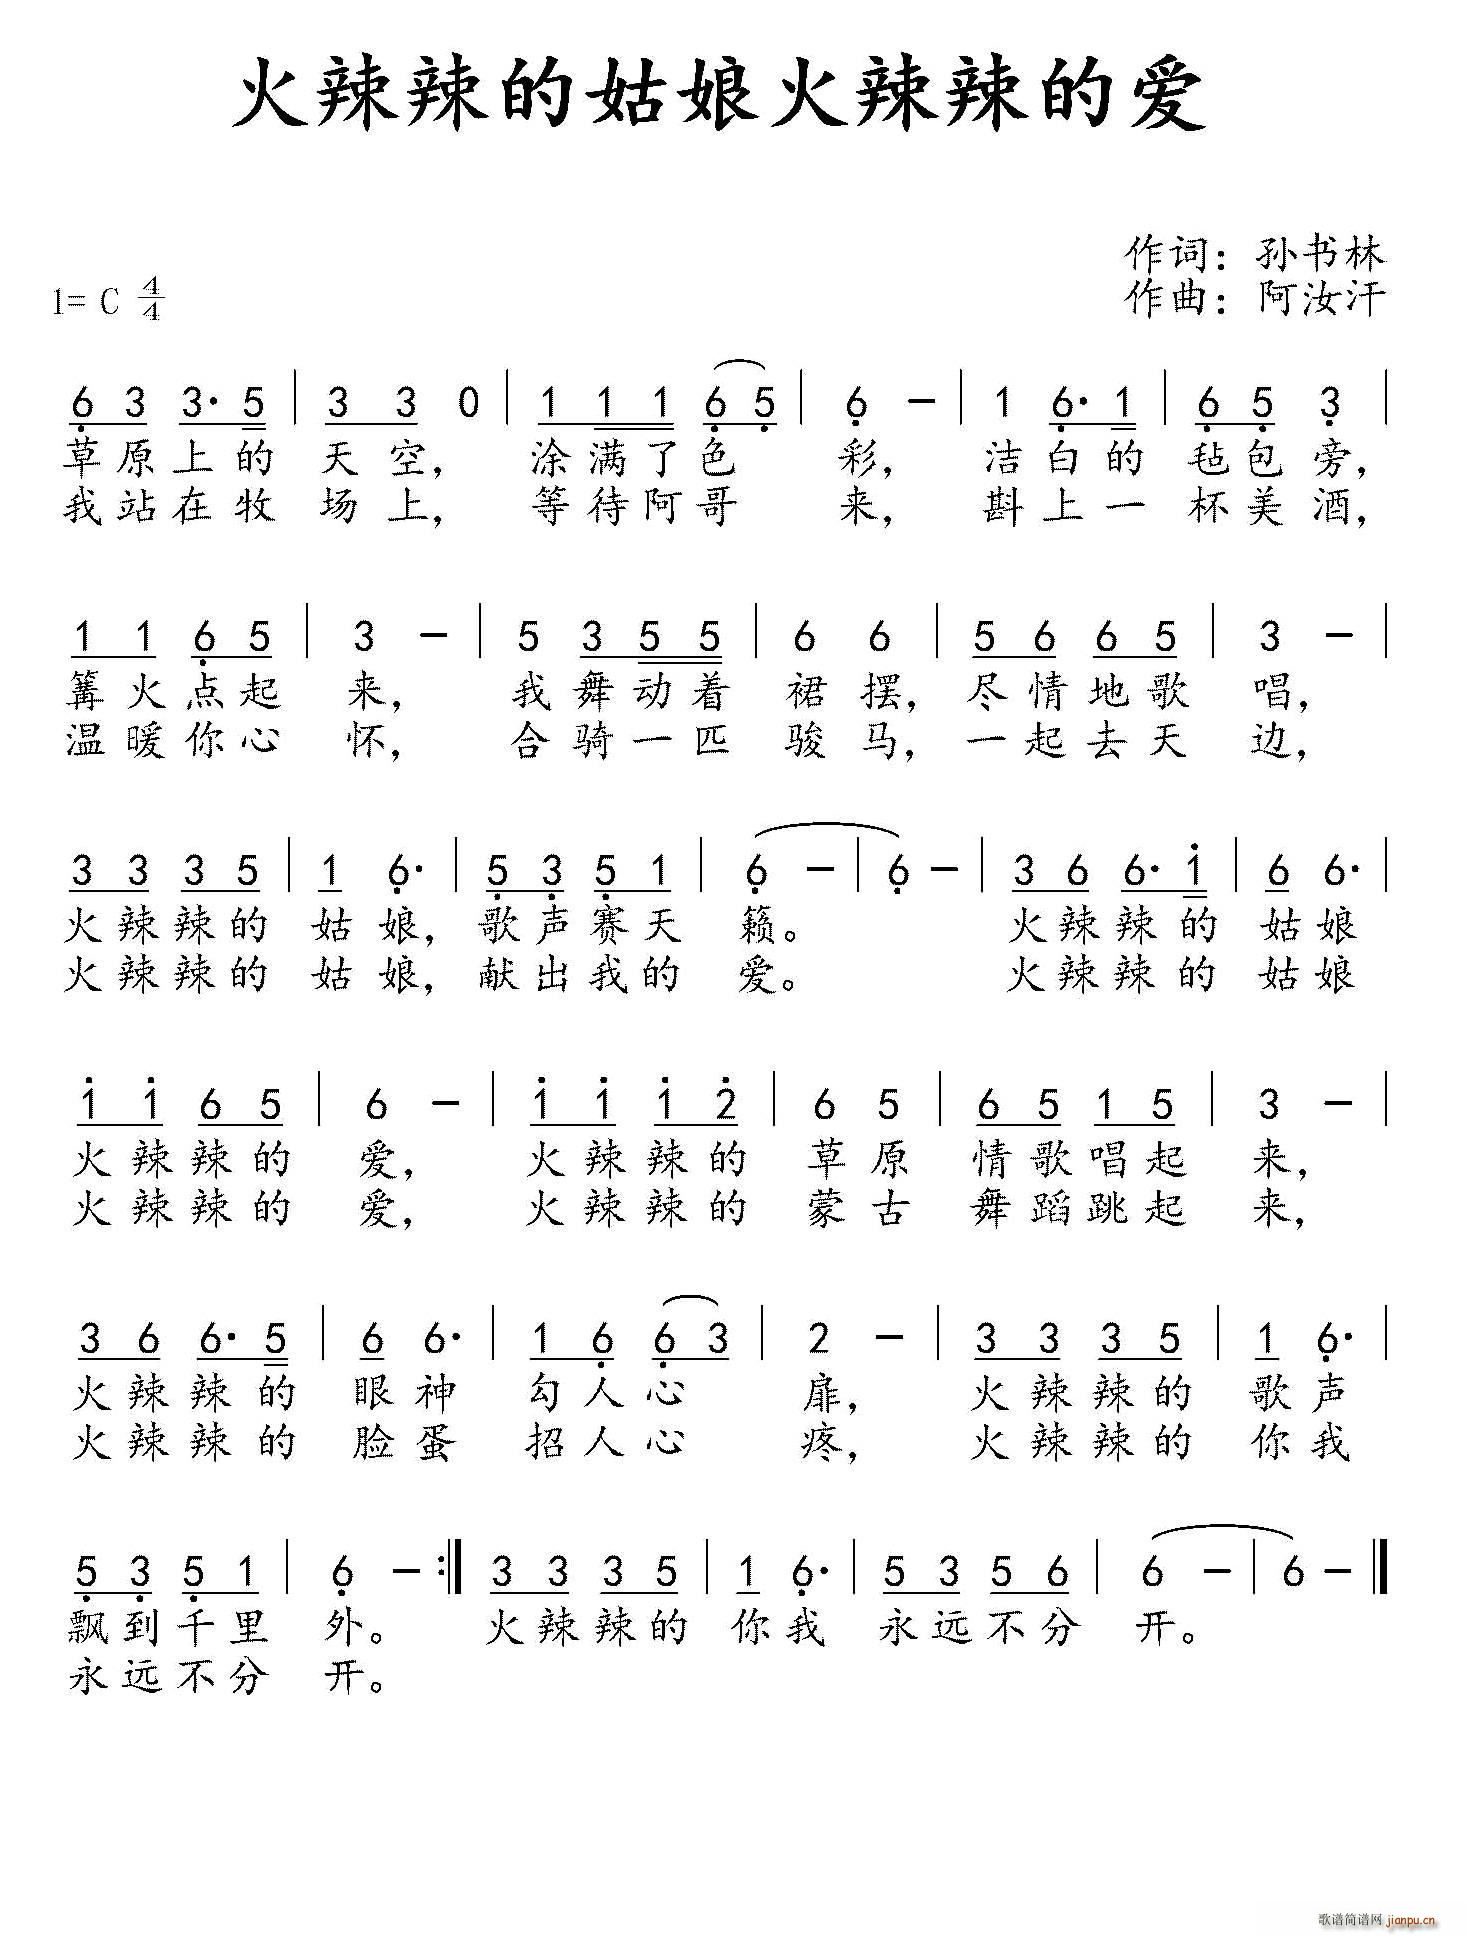 火辣辣的姑娘火辣辣的爱
作词：孙书林
1= C 4/4
作曲：阿汝汗
6 3 3· 5 | 3 3 0 | 1 1 1 6 5 | 6 － | 1 6· 1 | 6 5 3 |
草原上的 天空， 涂满了色 彩， 洁白的 毡包旁，
我站在牧 场上， 等待阿哥 来， 斟上一 杯美酒，
1 1 6 5 | 3 － | 5 3 5 5 | 6 6 | 5 6 6 5 | 3 － |
篝火点起 来， 我舞动着 裙摆， 尽情地歌 唱，
温暖你心 怀， 合骑一匹 骏马， 一起去天 边，
3 3 3 5 | 1 6· | 5 3 5 1 | 6 － | 6 － | 3 6 6· 1 | 6 6· |
火辣辣的 姑娘， 歌声赛天 籁。 火辣辣的 姑娘
火辣辣的 姑娘， 献出我的 爱。 火辣辣的 姑娘
1 1 6 5 | 6 － | 1 1 1 2 | 6 5 | 6 5 1 5 | 3 － |
火辣辣的 爱， 火辣辣的 草原 情歌唱起 来，
火辣辣的 爱， 火辣辣的 蒙古 舞蹈跳起 来，
3 6 6· 5 | 6 6· | 1 6 6 3 | 2 － | 3 3 3 5 | 1 6· |
火辣辣的 眼神 勾人心 扉， 火辣辣的 歌声
火辣辣的 脸蛋 招人心 疼， 火辣辣的 你我
5 3 5 1 | 6 － :‖ 3 3 3 5 | 1 6· | 5 3 5 6 | 6 － | 6 － ‖
飘到千里 外。 火辣辣的 你我 永远不分 开。
永远不分 开。
歌谱简谱网 jianpu.cn